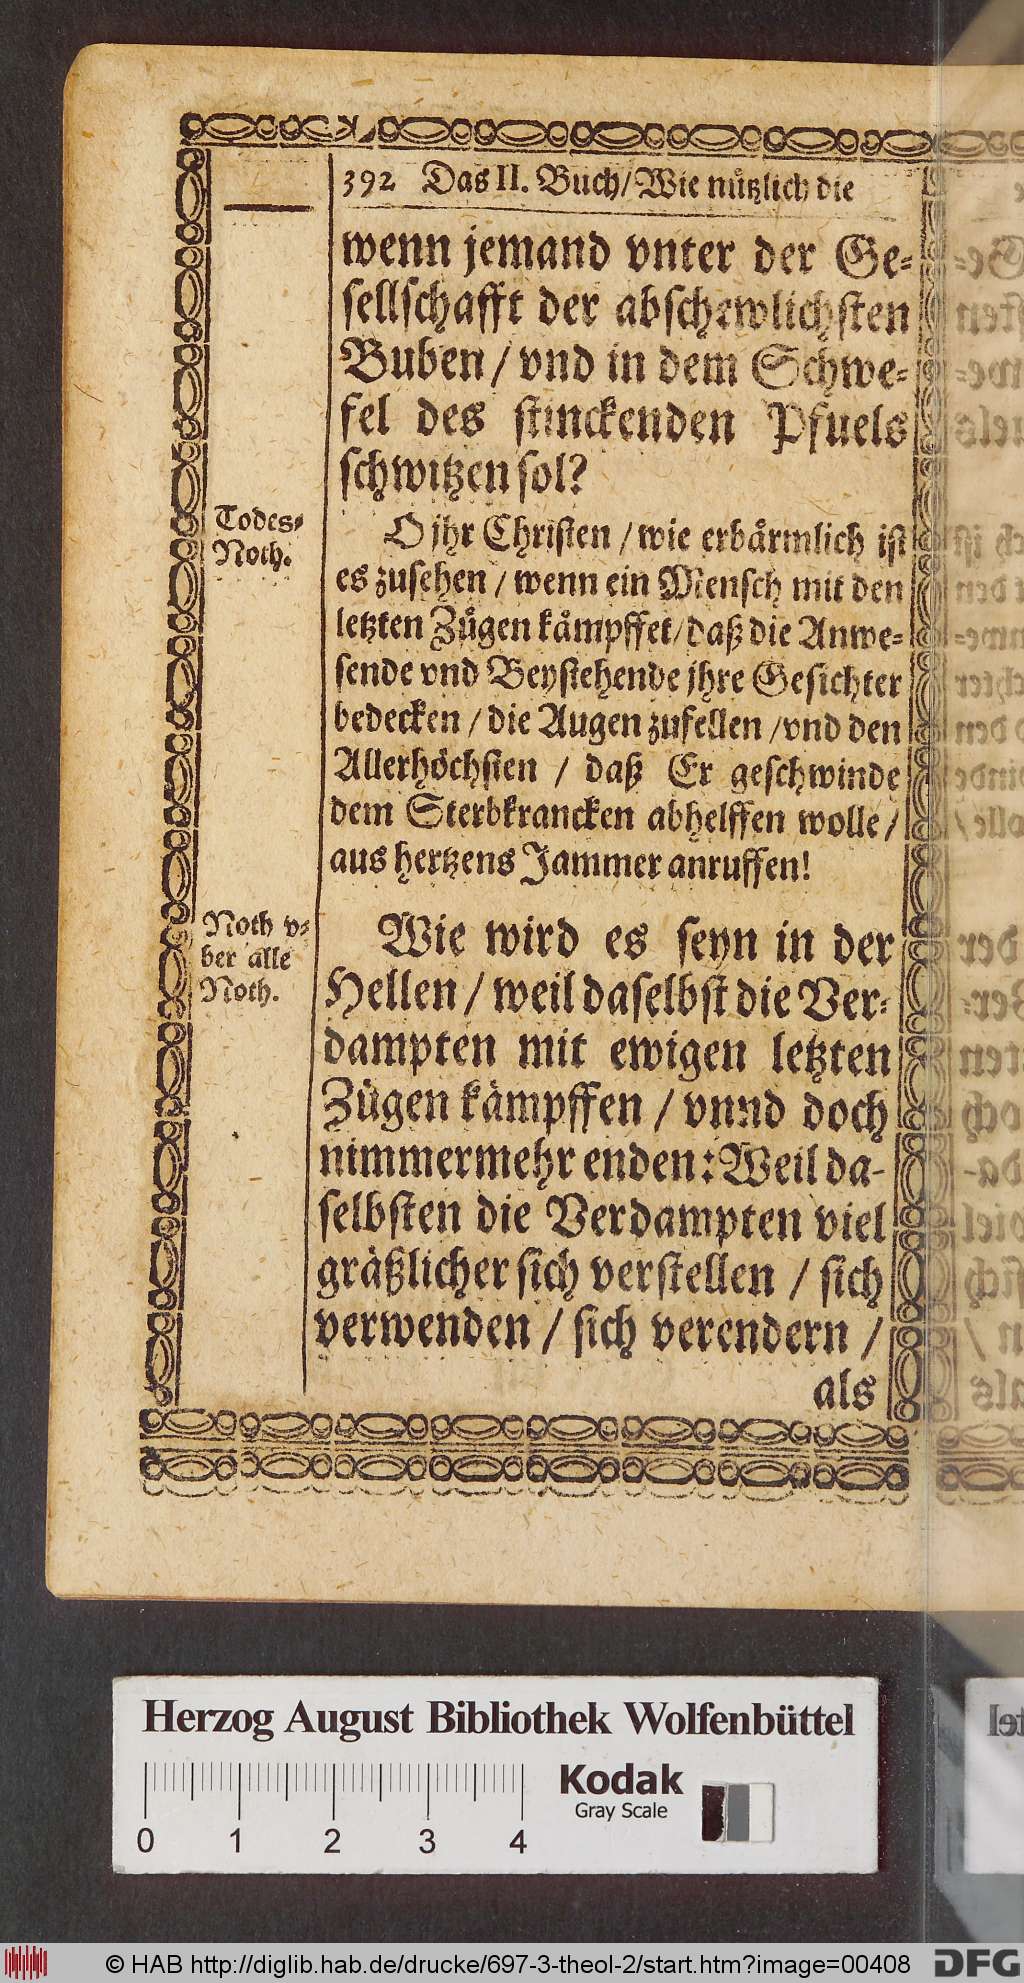 392 Das II. Buch/ Wie nützlich die
wenn jemand vnter der Ge-
sellschafft der abschewlichsten
Buben / vnd in dem Schwe-
fel des stinckenden Pfuels
schwitzen sol?
Todes-
Noth.
O jhr Christen / wie erbärmlich ist
es zusehen / wenn ein Mensch mit den
letzten Zügen kämpffet/ daß die Anwe-
sende vnd Beystehende jhre Gesichter
bedecken / die Augen zufellen / vnd den
Allerhöchsten / daß Er geschwinde
dem Sterbkrancken abhelffen wolle /
aus hertzens Jammer anruffen!
Noth v-
ber alle
Noth.
Wie wird es seyn in der
Hellen / weil daselbst die Ver-
dampten mit ewigen letzten
Zügen kämpffen / vnnd doch
nimmermehr enden: Weil da-
selbsten die Verdampten viel
gräßlicher sich verstellen / sich
verwenden / sich verendern /
als
Herzog August Bibliothek Wolfenbüttel
0 1 2 3 4
Kodak
Gray Scale
© HAB http://diglib.hab.de/drucke/697-3-theol-2/start.htm?image=00408
DFG